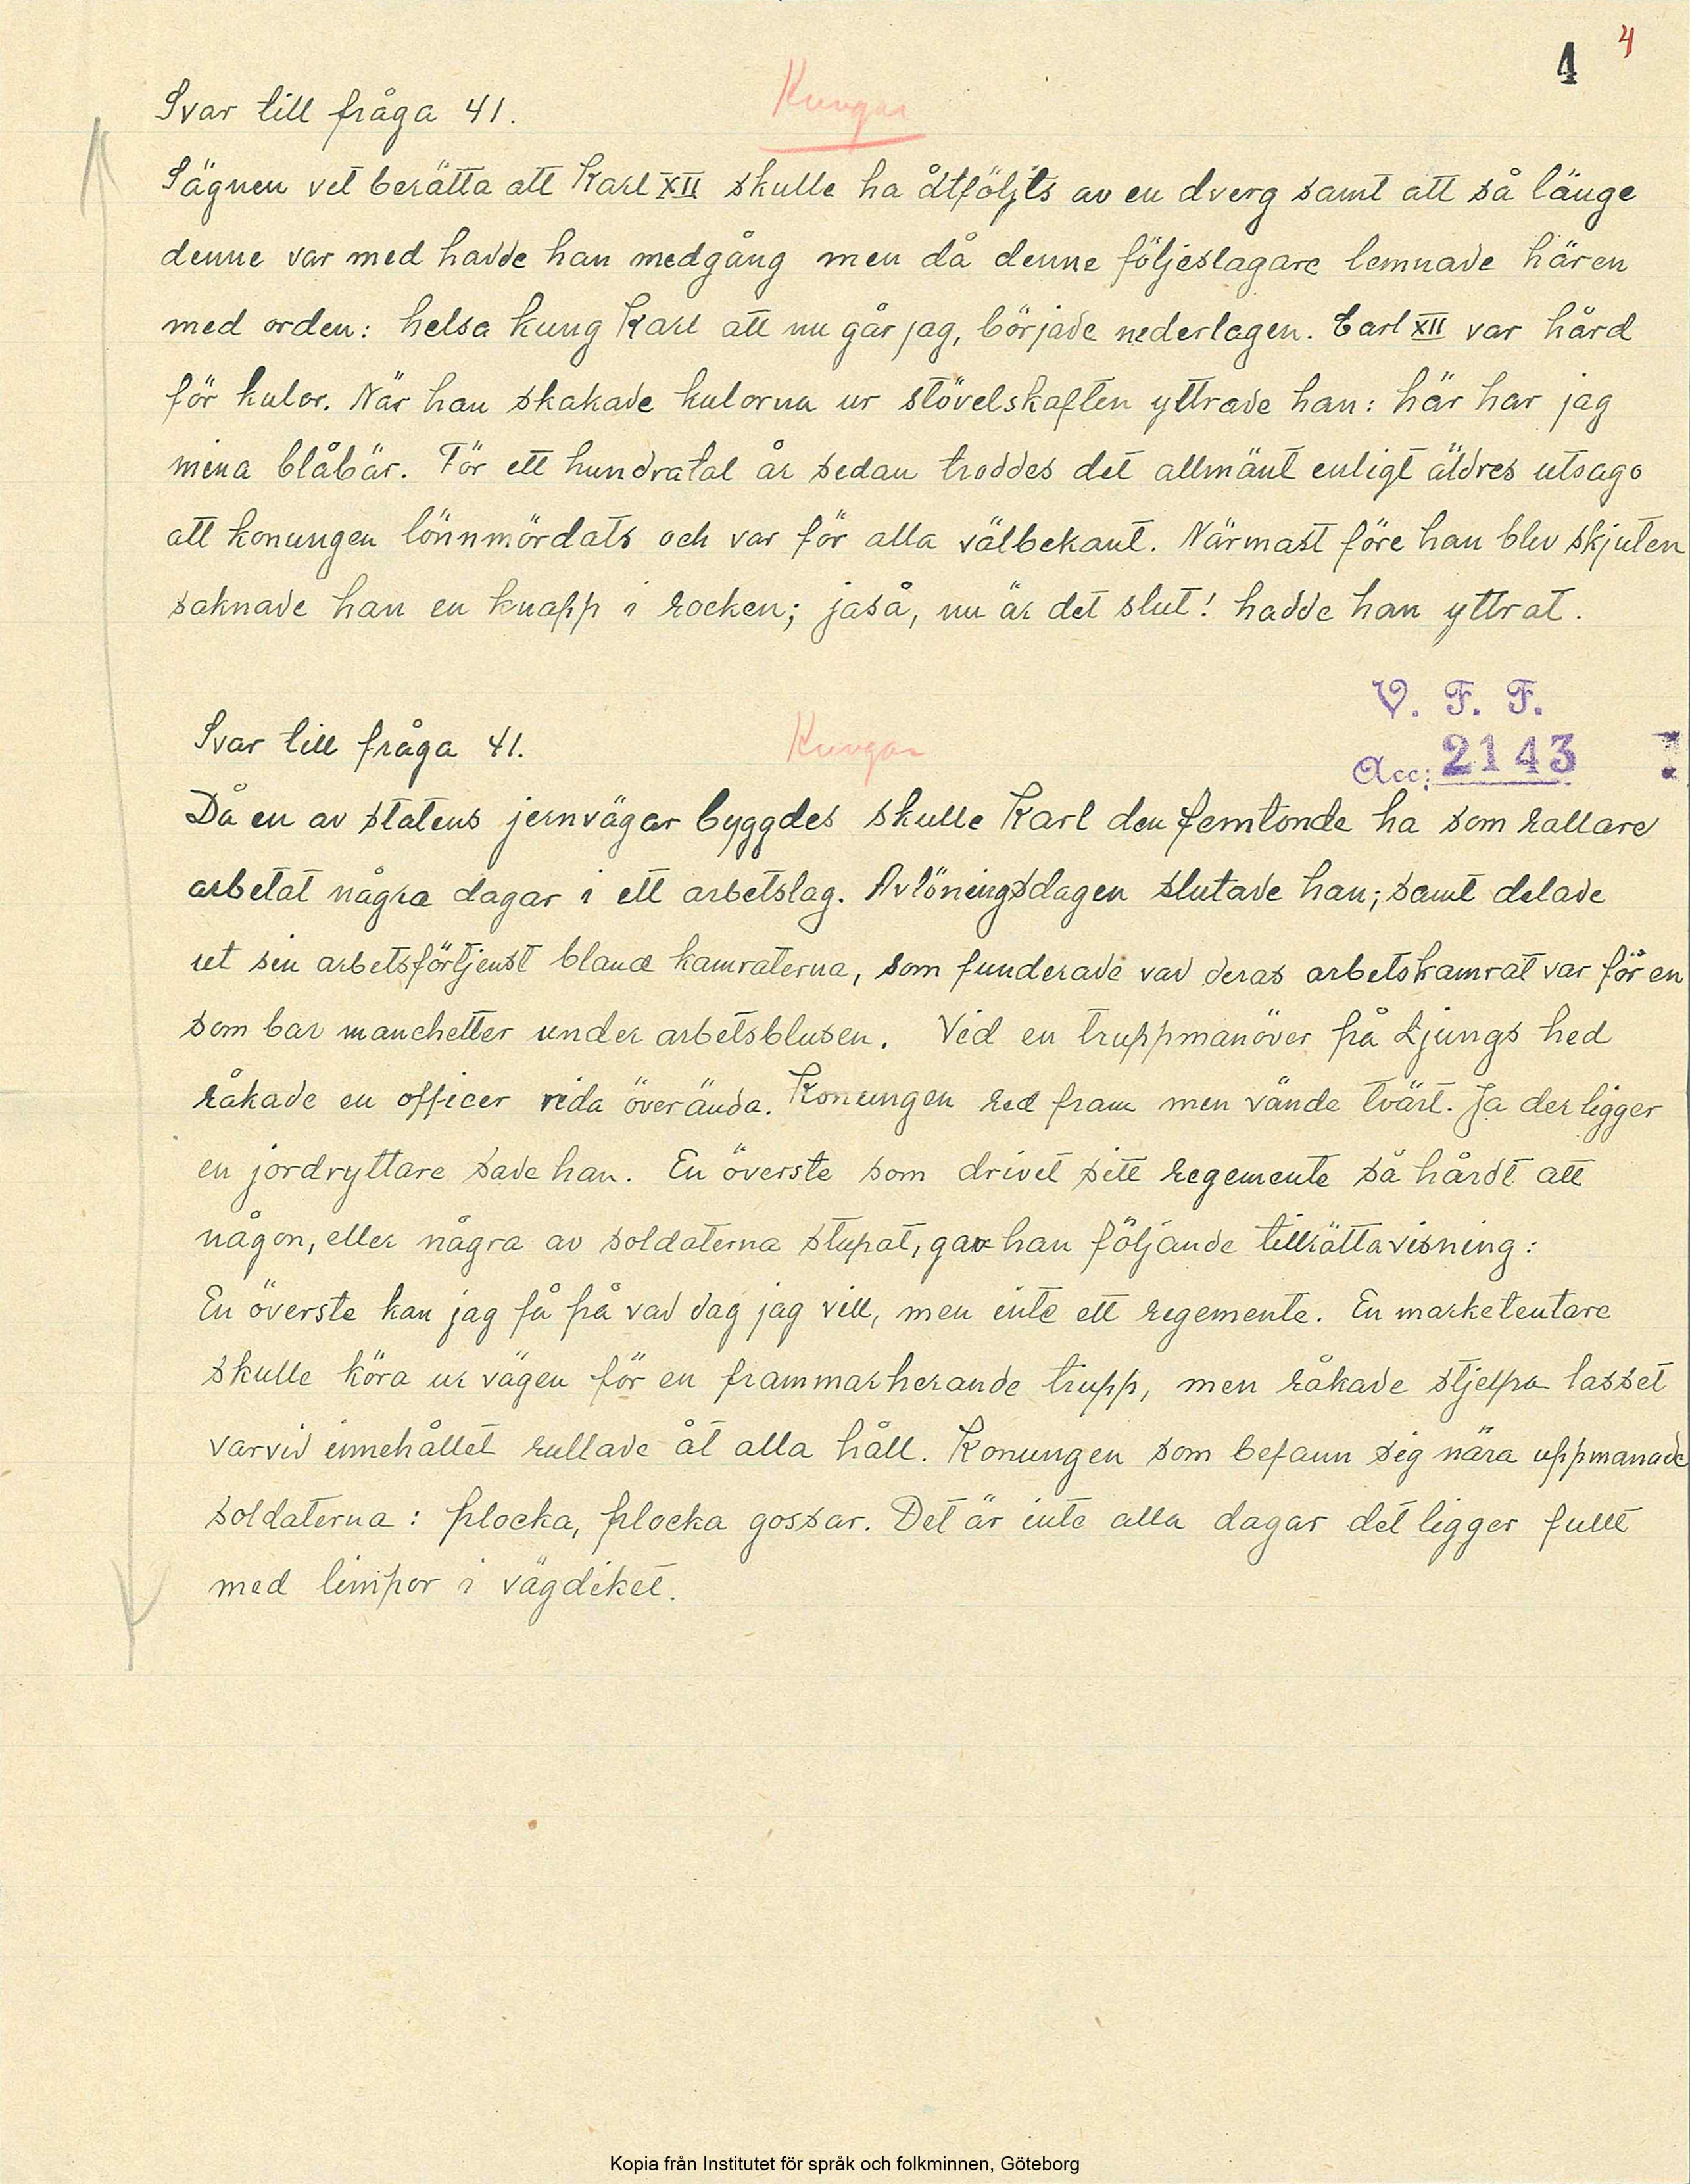 4 4
Svar till fråga 41.
Kungar
Sägnen vet berätta att Karl XII skulle ha åtföljts av en dverg samt att så länge
denne var med hadde han medgång men då denne följeslagare lemnade hären
med orden: helsa kung Karl att nu går jag, började nederlagen. Carl XII var hård
för kulor. När han skakade kulorna ur stövelskaften yttrade han: här har jag
mina blåbär. För ett hundratal år sedan troddes det allmänt enligt äldres utsago
att konungen lönnmördats och var för alla välbekant. Närmast före han blev skjuten
saknade han en knapp i rocken; jaså, nu är det slut! hadde han yttrat.
V. F. F.
Acc: 2143
Svar till fråga 41.
Kungar
Då en av statens jernvägar byggdes skulle Karl den femtonde ha som rallare
arbetat några dagar i ett arbetslag. Avlöningsdagen slutade han; samt delade
ut sin arbetsförtjenst bland kamraterna, som funderade vad deras arbetskamrat var för en
som bar manchetter under arbetsblusen. Vid en truppmanöver på Ljungs hed
råkade en officer rida överända. Konungen red fram men vände tvärt. Ja der ligger
en jordryttare sade han. En överste som drivet sitt regemente så hårdt att
någon, eller några av soldaterna stupat, gav han följande tillrättavisning:
En överste kan jag få på vad dag jag vill, men inte ett regemente. En marketentare
skulle köra ur vägen för en frammarherande trupp, men råkade stjelpa lasset
varvid innehållet rullade åt alla håll. Konungen som befann sig nära uppmanade
soldaterna: plocka, plocka gossar. Det är inte alla dagar det ligger fullt
med limpor i vägdiket.
Kopia från Institutet för språk och folkminnen, Göteborg